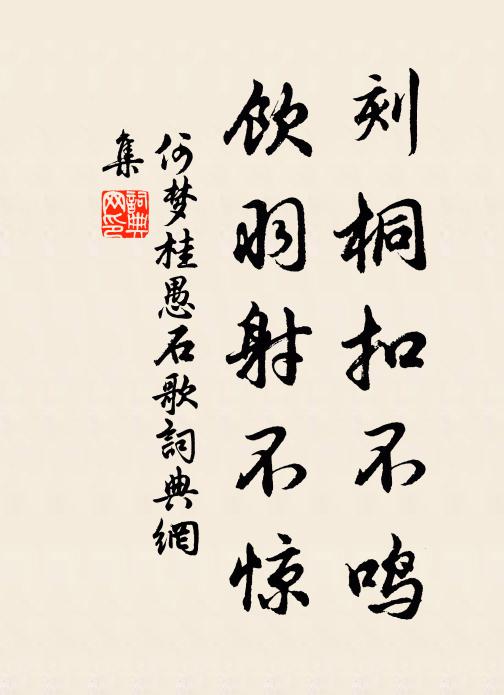 刻桐扣不鸣
饮羽射不惊
何梦桂愚石歌詞典網
集
詞典
网印